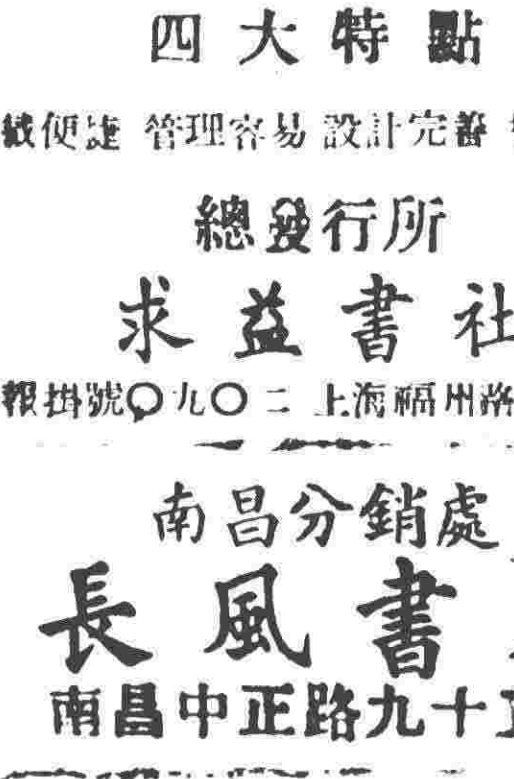 四大特點
便捷 管理容易 設計完善
總發行所
求益書社
報掛號〇九〇二 上海福州路
南昌分銷處
長風書
南昌中正路九十